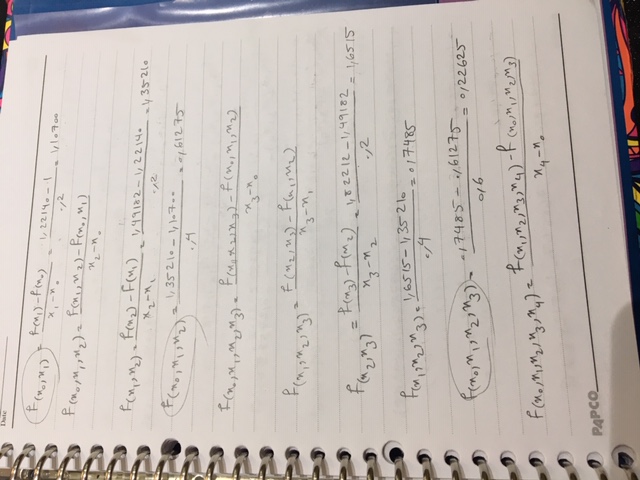 Date
f(x₀,x₁) = (f(x₁) - f(x₀))/(x₁-x₀) = (1,22140 - 1)/(0,2) = 1,10700
f(x₀,x₁,x₂) = (f(x₁,x₂) - f(x₀,x₁))/(x₂-x₀)
f(x₁,x₂) = (f(x₂) - f(x₁))/(x₂-x₁) = (1,49182 - 1,22140)/(0,2) = 1,35210
f(x₀,x₁,x₂) = (1,35210 - 1,10700)/(0,4) = 0,61275
f(x₀,x₁,x₂,x₃) = (f(x₀,x₂,x₃) - f(x₀,x₁,x₂))/(x₃-x₀)
f(x₁,x₂,x₃) = (f(x₂,x₃) - f(x₁,x₂))/(x₃-x₁)
f(x₂,x₃) = (f(x₃) - f(x₂))/(x₃-x₂) = (1,82212 - 1,49182)/(0,2) = 1,6515
f(x₁,x₂,x₃) = (1,6515 - 1,35210)/(0,4) = 0,7485
f(x₀,x₁,x₂,x₃) = (0,7485 - 0,61275)/(0,6) = 0,22625
f(x₀,x₁,x₂,x₃,x₄) = (f(x₁,x₂,x₃,x₄) - f(x₀,x₁,x₂,x₃))/(x₄-x₀)
PAPCO